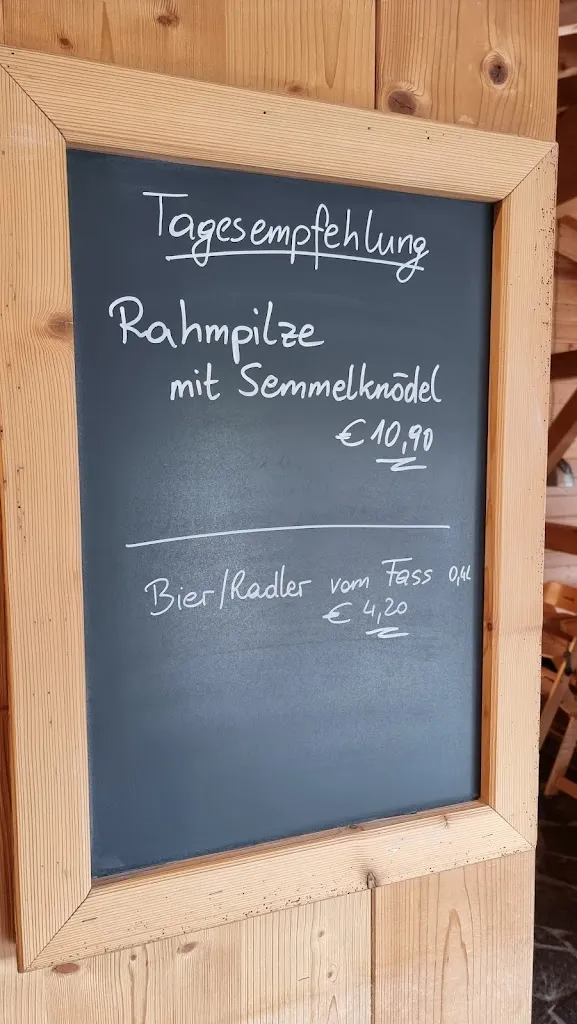 Tagesempfehlung
Rahmpilze
mit Semmelknödel
€ 10,90
Bier/Radler vom Fass 0,4L
€ 4,20